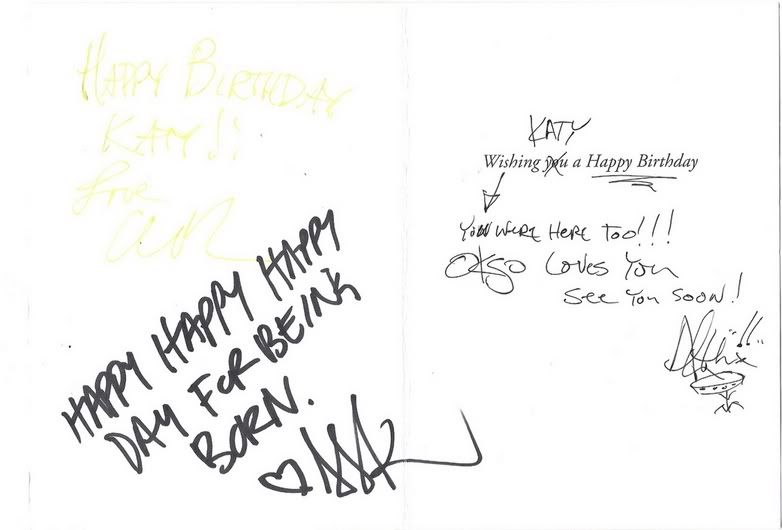 HAPPY BIRTHDAY
KATY!!
Love
HAPPY HAPPY HAPPY
DAY FOR BEING
BORN.
KATY
Wishing you a Happy Birthday
YOU WERE HERE TOO!!!
OKGO LOVES YOU
SEE YOU SOON!